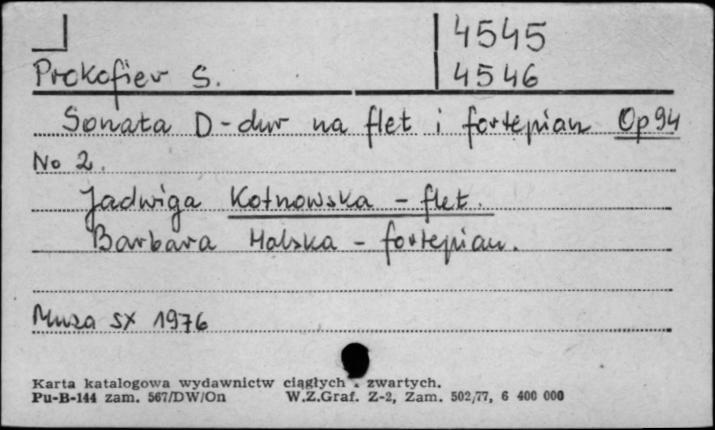 4545
Prokofiev S. 4546
Sonata D-dur na flet i fortepian Op 94
No 2.
Jadwiga Kotnowska - flet.
Barbara Halska - fortepian.
Muza SX 1976
Karta katalogowa wydawnictw ciągłych i zwartych.
Pu-B-144 zam. 567/DW/On W.Z.Graf. Z-2, Zam. 502/77, 6 400 000